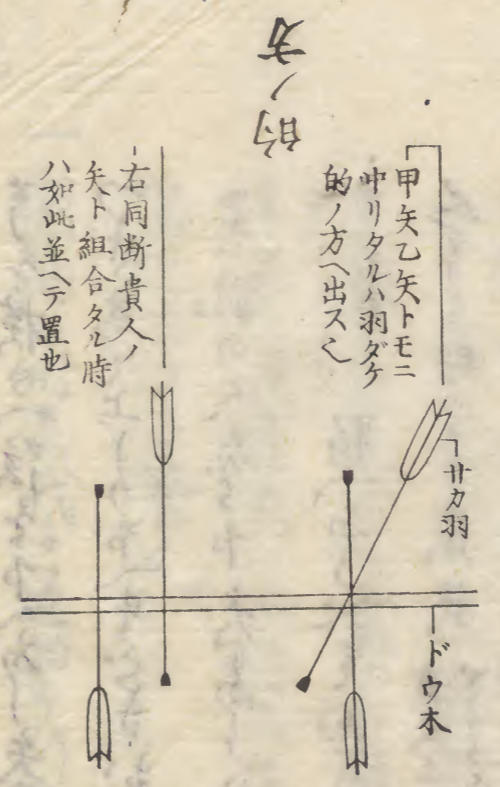 甲矢乙矢トモニ
中リタルハ羽ダケ
的ノ方ヘ出ス也
サカ羽
ドウ木
的ノ方
右同断貴人ノ
矢ト組合タル時
ハ如此並ヘテ置也